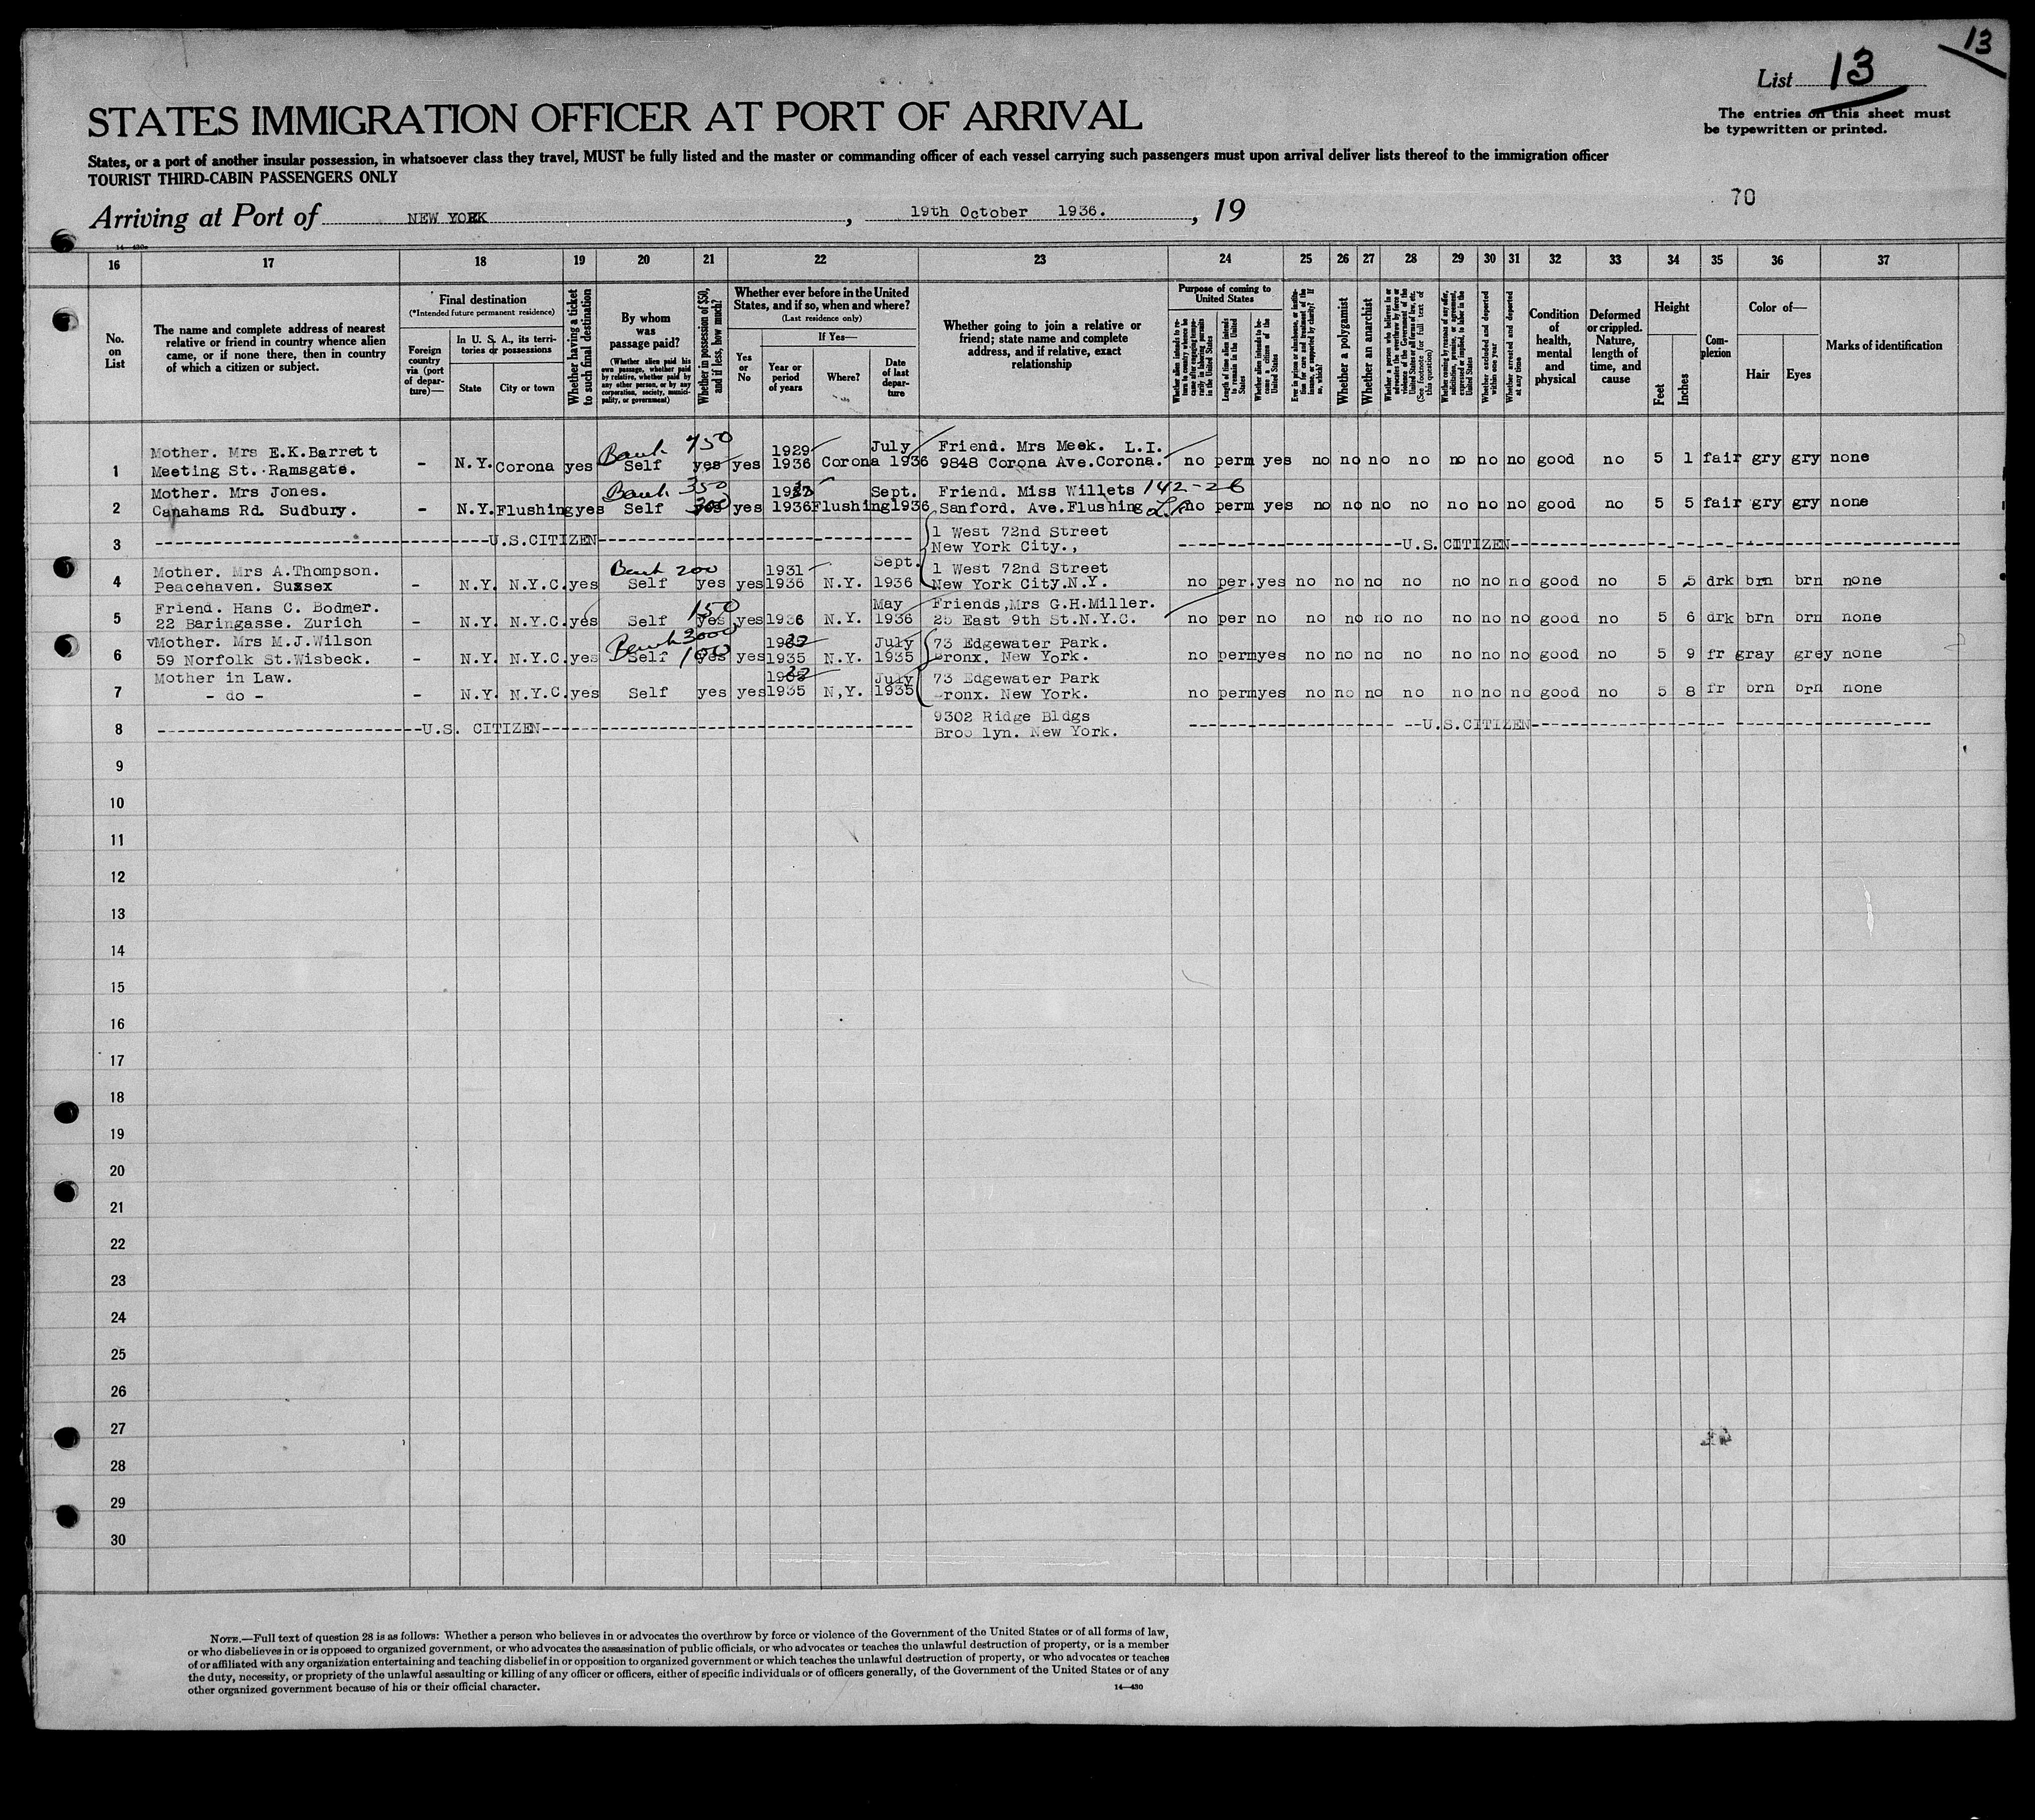 13
List 13
The entries on this sheet must
be typewritten or printed.
STATES IMMIGRATION OFFICER AT PORT OF ARRIVAL
States, or a port of another insular possession, in whatsoever class they travel, MUST be fully listed and the master or commanding officer of each vessel carrying such passengers must upon arrival deliver lists thereof to the immigration officer
TOURIST THIRD-CABIN PASSENGERS ONLY
70
Arriving at Port of NEW YORK, 19th October 1936., 19
16 17 18 19 20 21 22 23 24 25 26 27 28 29 30 31 32 33 34 35 36 37
No. on List
The name and complete address of nearest relative or friend in country whence alien came, or if none there, then in country of which a citizen or subject.
Final destination
(*Intended future permanent residence)
Foreign country via (port of departure)—
In U. S. A., its territories or possessions
State
City or town
Whether having a ticket to such final destination
By whom was passage paid?
(Whether alien paid his own passage, whether paid by relative, whether paid by any other person, or by any corporation, society, municipality, or government)
Whether in possession of $50, and if less, how much?
Whether ever before in the United States, and if so, when and where?
(Last residence only)
Yes or No
If Yes—
Year or period of years
Where?
Date of last departure
Whether going to join a relative or friend; state name and complete address, and if relative, exact relationship
Purpose of coming to United States
Whether alien intends to return to country whence he came after engaging temporarily in laboring pursuits in the United States
Length of time alien intends to remain in the United States
Whether alien intends to become a citizen of the United States
Ever in prison or almshouse, or institution for care and treatment of the insane, or supported by charity? If so, which?
Whether a polygamist
Whether an anarchist
Whether a person who believes in or advocates the overthrow by force or violence of the Government of the United States or all forms of law, etc. (See footnote for full text of this question)
Whether coming by reason of any offer, solicitation, promise, or agreement, expressed or implied, to labor in the United States
Whether excluded and deported within one year
Whether arrested and deported at any time
Condition of health, mental and physical
Deformed or crippled. Nature, length of time, and cause
Height
Feet
Inches
Complexion
Color of—
Hair
Eyes
Marks of identification
Bank 750 1929 July
Mother. Mrs E.K.Barrett Friend. Mrs Meek. L.I.
1 Meeting St. Ramsgate. - N.Y. Corona yes Self yes yes 1936 Corona 1936 9848 Corona Ave.Corona. no perm yes no no no no no no no good no 5 1 fair gry gry none
Mother. Mrs Jones. Bank 350 Sept. Friend. Miss Willets 142-26
2 Canahams Rd. Sudbury. - N.Y. Flushing yes Self yes 1936 Flushing 1936 Sanford. Ave.Flushing L.I. no perm yes no no no no no no no good no 5 5 fair gry gry none
1 West 72nd Street
3 U.S.CITIZEN New York City., U.S.CITIZEN
Mother. Mrs A.Thompson. Bank 200 1931 Sept. 1 West 72nd Street
4 Peacehaven. Sussex - N.Y. N.Y.C. yes Self yes yes 1936 N.Y. 1936 New York City.N.Y. no per. yes no no no no no no no good no 5 5 drk brn brn none
Friend. Hans C. Bodmer. 150 May Friends,Mrs G.H.Miller.
5 22 Baringasse. Zurich - N.Y. N.Y.C. yes Self yes yes 1936 N.Y. 1936 25 East 9th St.N.Y.C. no per no no no no no no no no good no 5 6 drk brn brn none
Mother. Mrs M.J.Wilson Bank 3000 July 73 Edgewater Park.
6 59 Norfolk St.Wisbeck. - N.Y. N.Y.C. yes Self 100 yes yes 1935 N.Y. 1935 Bronx. New York. no perm yes no no no no no no no good no 5 9 fr gray grey none
Mother in Law. July 73 Edgewater Park
7 - do - - N.Y. N.Y.C. yes Self yes yes 1935 N,Y. 1935 Bronx. New York. no perm yes no no no no no no no good no 5 8 fr brn brn none
9302 Ridge Bldgs
8 U.S. CITIZEN Broo lyn. New York. U.S.CITIZEN
9
10
11
12
13
14
15
16
17
18
19
20
21
22
23
24
25
26
27
28
29
30
NOTE.—Full text of question 28 is as follows: Whether a person who believes in or advocates the overthrow by force or violence of the Government of the United States or of all forms of law,
or who disbelieves in or is opposed to organized government, or who advocates the assassination of public officials, or who advocates or teaches the unlawful destruction of property, or is a member
of or affiliated with any organization entertaining and teaching disbelief in or opposition to organized government or which teaches the unlawful destruction of property, or who advocates or teaches
the duty, necessity, or propriety of the unlawful assaulting or killing of any officer or officers, either of specific individuals or of officers generally, of the Government of the United States or of any
other organized government because of his or their official character.
14—430